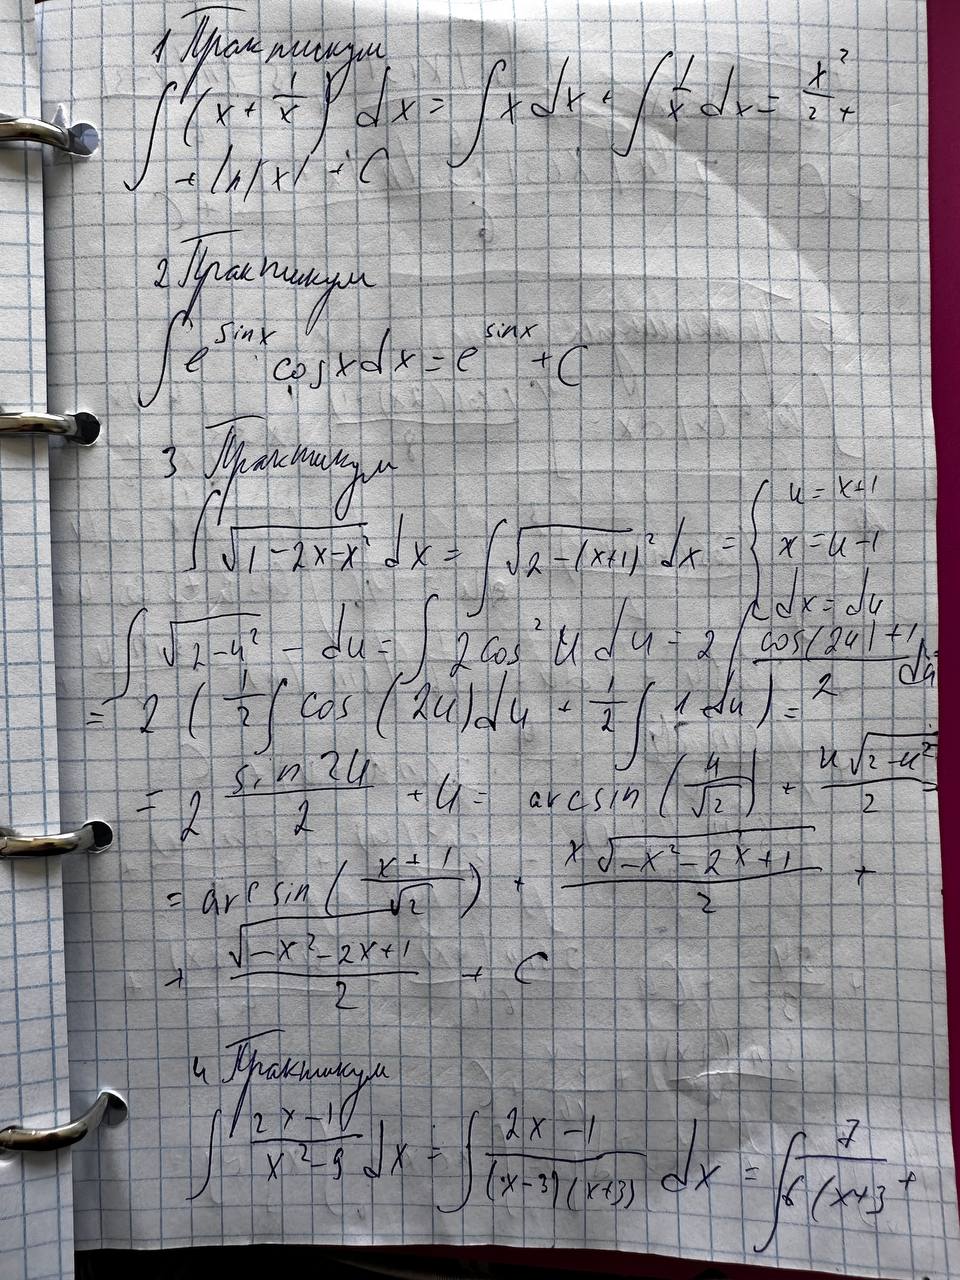 1 Практикум
∫ (x + 1/x) dx = ∫ x dx + ∫ 1/x dx = x²/2 +
+ ln|x| + C
2 Практикум
∫ e^sinx · cosx dx = e^sinx + C
3 Практикум
∫ √(1-2x-x²) dx = ∫ √(2-(x+1)²) dx = { u = x+1
x = u-1
dx = du
∫ √(2-u²) - du = ∫ 2cos² u du = 2 ∫ (cos(2u)+1)/2 du
= 2 ( 1/2 ∫ cos (2u) du + 1/2 ∫ 1 du ) =
= 2 sin 2u/2 + u = arcsin (u/√2) + u√(2-u²)/2
= arcsin ( (x+1)/√2 ) + x√(-x²-2x+1)/2 +
+ √(-x²-2x+1)/2 + C
4 Практикум
∫ (2x-1)/(x²-9) dx = ∫ (2x-1)/((x-3)(x+3)) dx = ∫ 7/(6(x+3 +